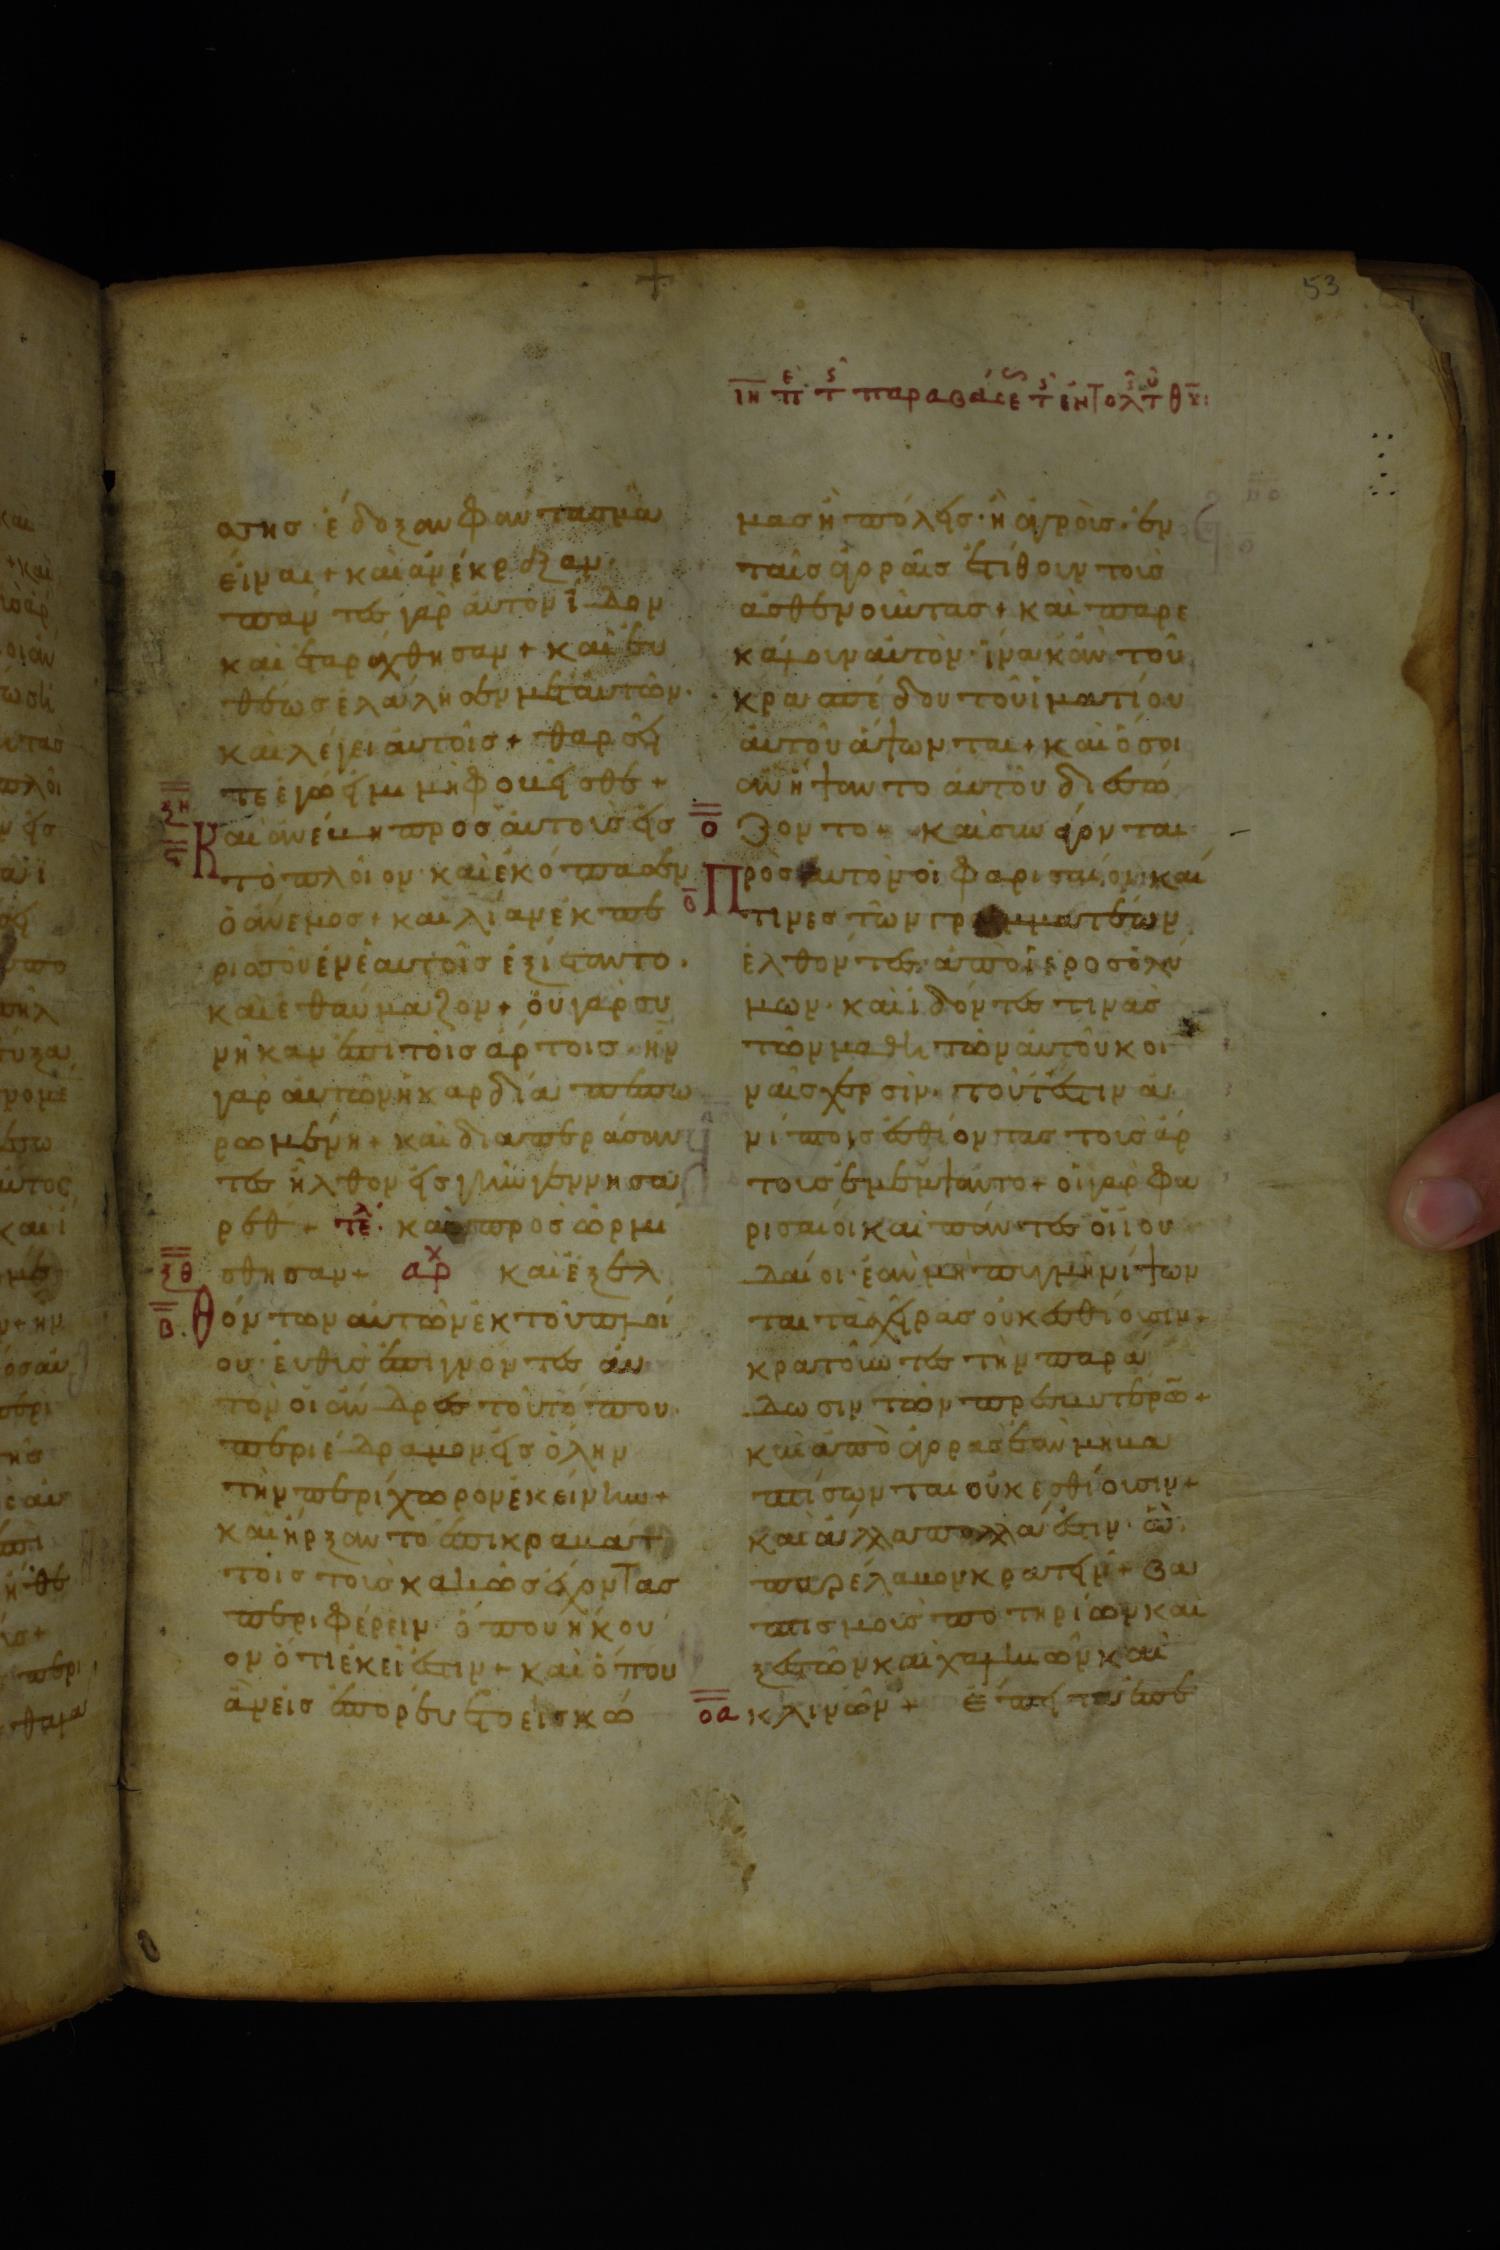 53
ιη π τ παραβάσε τ εντολ τ θυ:
σσησ· ἐδοξαν φαντασμα
εἶναι + και ἀνέκραξαν·
παντεσ γαρ ἀυτὸν ἴδον
και ἐταράχθησαν + και ἐυ
θέωσ ἐλάλησεν μετ ἀυτῶν·
και λέγει ἀυτοῖσ + θαρσεῖ
τε ἐγώ εἰμι μὴ φοβεῖσθε +
ξη
Και ἀνέβη προσ ἀυτουσ εἰσ
τὸ πλοῖον· και ἐκόπασεν
ὁ ἄνεμοσ + και λίαν ἐκ πε
ρισσοῦ ἐν ἑαυτοῖσ ἐξίσταντο·
και ἐθαύμαζον + ὀυ γαρ συ
νῆκαν ἐπι τοῖσ ἄρτοισ· ἦν
γαρ ἀυτῶν ἡ καρδία πεπω
ρωμένη + και διαπεράσαν
τεσ ἦλθον εἰσ γῆν γεννησα
ρέθ + τε λ· και προσ ὡρμι
σθησαν + αρχ και ἐξελ
ξθ
β
Θόντων ἀυτῶν ἐκ τοῦ πλοί
ου· ἐυθὺσ ἐπιγνόντεσ ἀυ
τὸν οἱ ἄνδρεσ τοῦ τόπου·
περιέδραμον εἰσ ὅλην
τὴν περίχωρον ἐκείνην +
και ἤρξαντο ἐπι κραβάτ
τοισ τουσ κακῶσ ἔχοντασ
περιφέρειν· ὅπου ἤκου
ον ὅτι ἐκεῖ ἐστιν + και ὅπου
ἂν εἰσ ἐπορεύετο εἰσ κώ
μασ ἢ πόλεισ· ἢ ἀγροὺσ· ἐν
ταῖσ ἀγοραῖσ ἐτίθουν τουσ
ἀσθενοῦντασ + και παρε
κάλουν ἀυτὸν· ἵνα κἂν τοῦ
κρασπέδου τοῦ ἱματίου
ἀυτοῦ ἅψωνται + και ὅσοι
ἂν ἥψαντο ἀυτοῦ διεσώ
ο
ζοντο + και συνάγονται
ο
Πρὸσ ἀυτὸν οἱ φαρισαῖοι· και
τινεσ τῶν γραμματέων
ἐλθόντεσ ἀπὸ ἱεροσολύ
μων· και ἰδόντεσ τινασ
τῶν μαθητῶν ἀυτοῦ κοι
ναῖσ χερσὶν· τοῦτέστιν ἀ
νίπτοισ ἐσθίοντασ τουσ ἄρ
τουσ ἐμέμψαντο + οἱ γαρ φα
ρισαῖοι και πάντεσ οἱ ἰου
δαῖοι· ἐαν μὴ πυγμῇ νίψων
ται τασ χεῖρασ ουκ ἐσθίουσιν +
κρατοῦντεσ τὴν παρά
δωσιν τῶν πρεσβυτέρω +
και ἀπὸ ἀγορασ ἐαν μη βα
πτίσωνται οὐκ ἐσθίουσιν +
και ἄλλα πολλά ἐστιν· ἃ
παρέλαβον κρατεῖν + βα
πτισμουσ ποτηρίων και
ξεστῶν και χαλκίων και
οα
κλινῶν + Ἔπειτα ἐπε